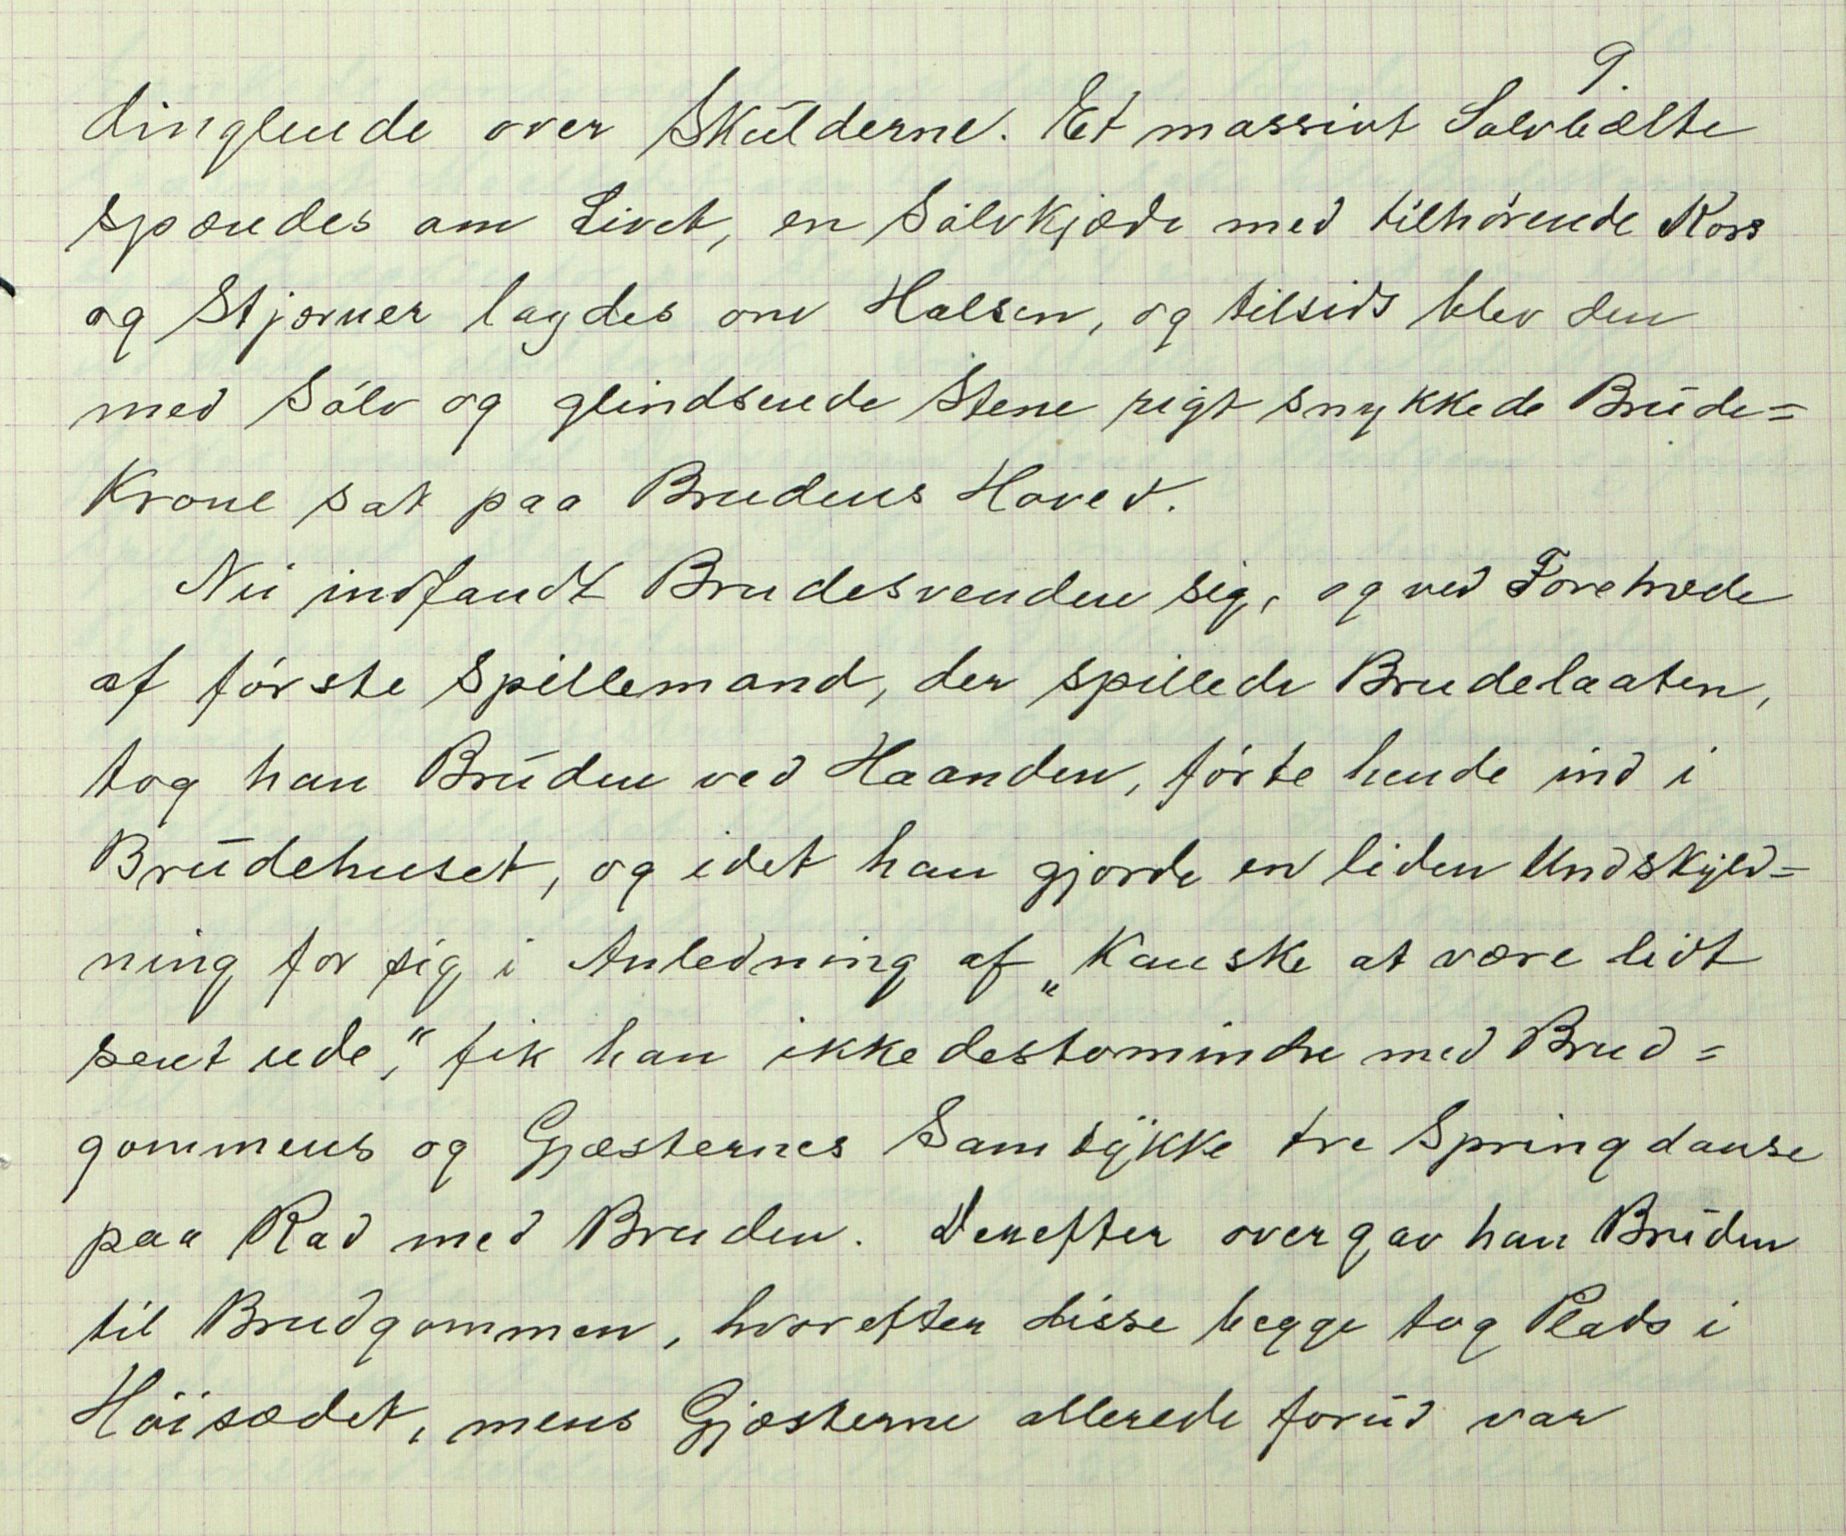 9.
dinglende over Skulderne. Et massivt Sølvbælte
spændes om Livet, en Sølvkjæde med tilhørende Kors
og Stjerner lagdes om Halsen, og tilsids blev den
med Sølv og glindsende Stene rigt smykkede Brude=
krone sat paa Brudens Hoved.
Nu indfandt Brudesvenden sig, og ved Foretræde
af første Spillemand, der spillede Brudelaaten,
tog han Bruden ved Haanden, førte hende ind i
Brudehuset, og idet han gjorde en liden Undskyld=
ning for sig i Anledning af „Kanske at være lidt
sent ude,“ fik han ikke destomindre med Brud=
gommens og Gjæsternes Samtykke tre Springdanse
paa Rad med Bruden. Derefter overgav han Bruden
til Brudgommen, hvorefter disse begge tog Plads i
Høisædet, mens Gjæsterne allerede forud var